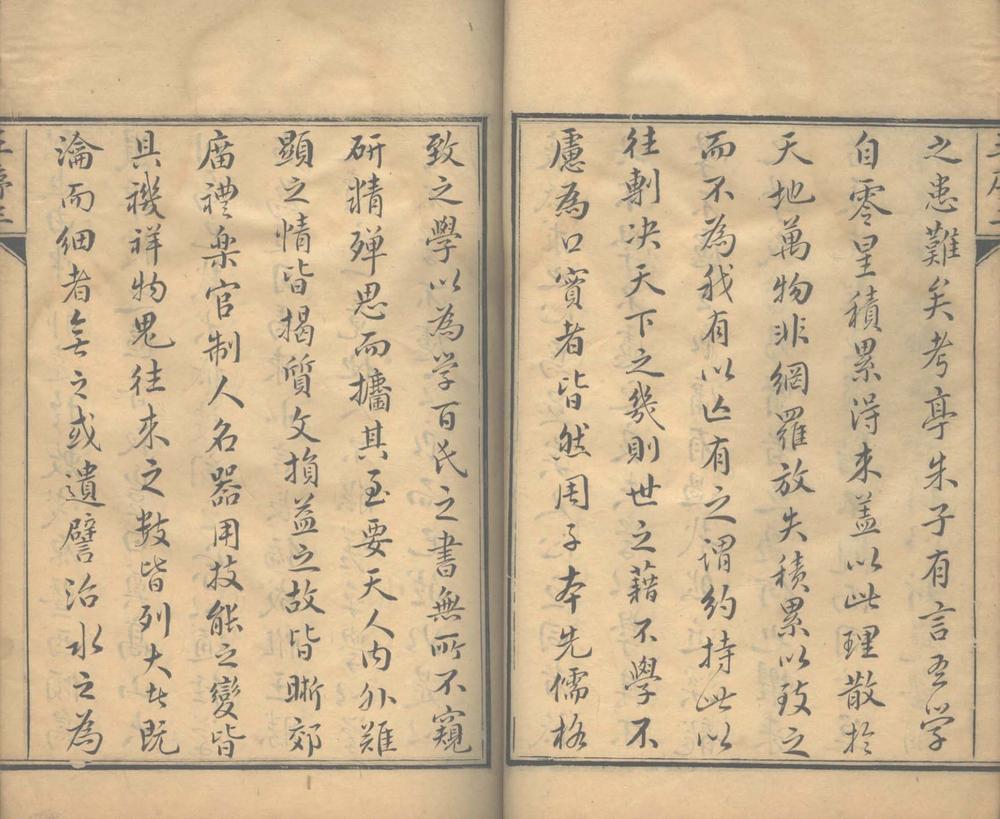 之患難矣考亭朱子有言吾學
自零星積累得来蓋以此理散於
天地萬物非網羅放失積累以致之
而不為我有以亡有之謂約持此以
往剸决天下之幾則世之藉不學不
慮為口實者皆然用子本先儒格
致之學以為学百氏之書無所不窺
研精殫思而攟其至要天人内外难
顯之情皆揭質文損益之故皆晰郊
庿禮楽官制人名器用技能之變皆
具禨祥物鬼往来之数皆列大者既
瀹而細者無之或遺譬治水之為